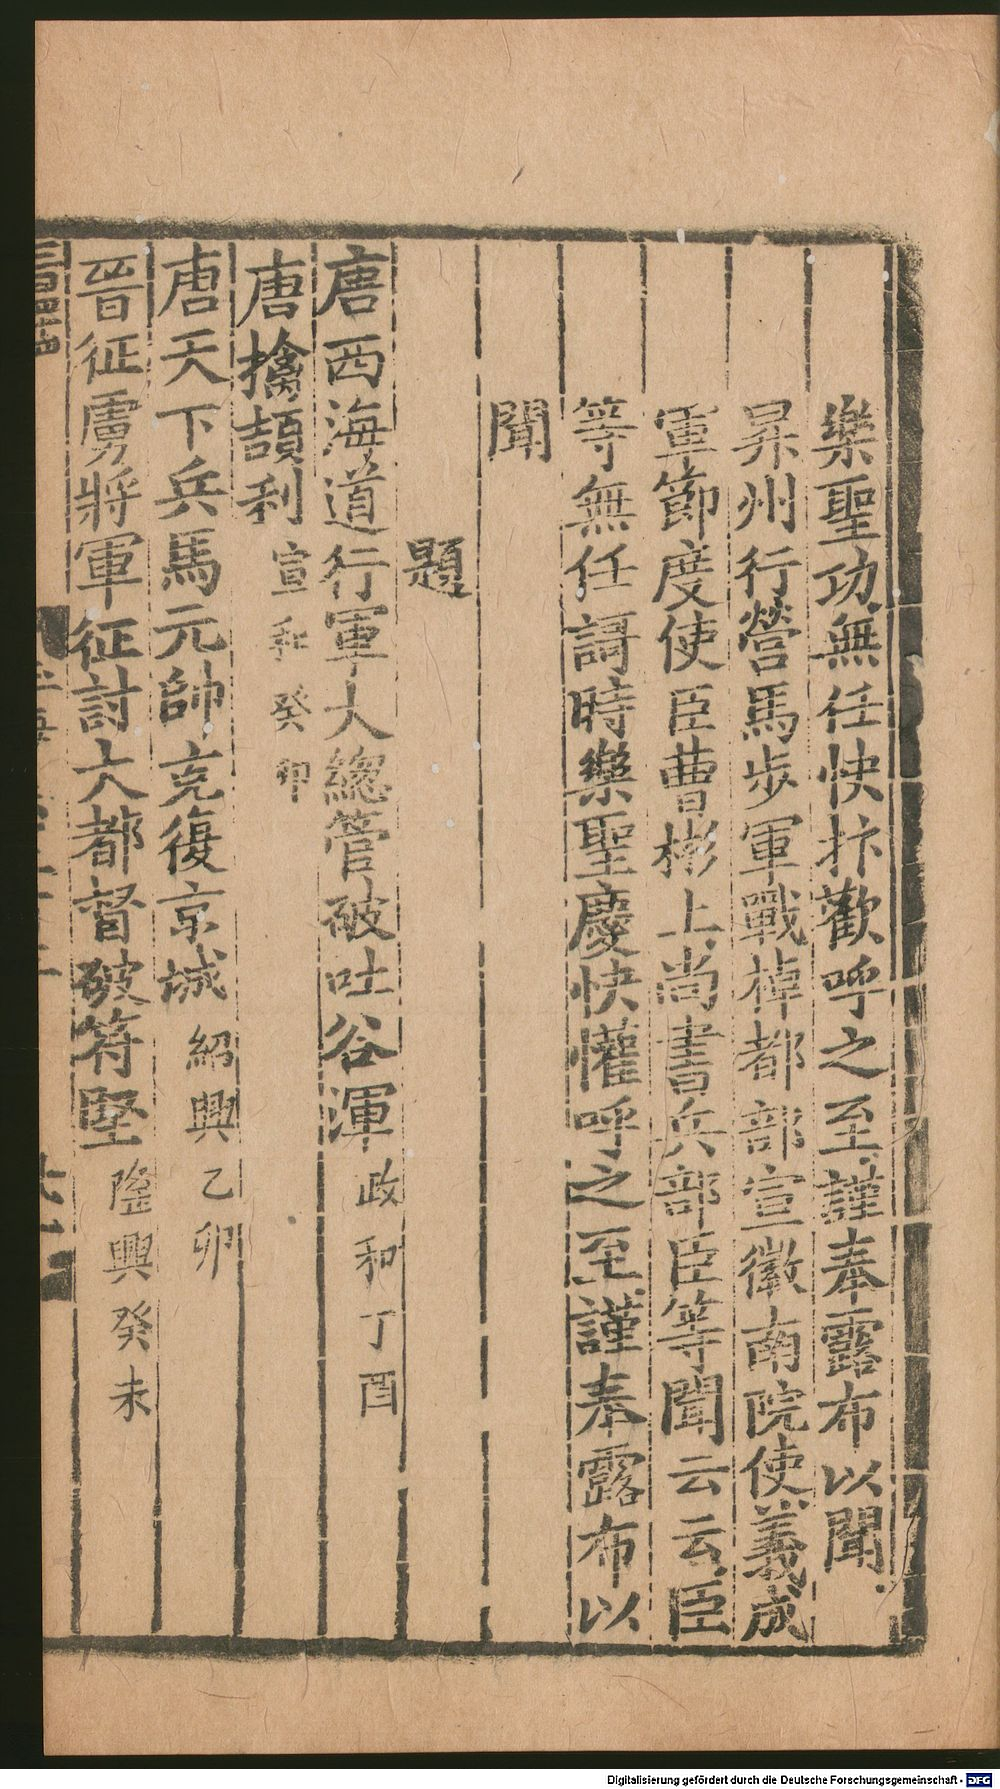 樂聖功無任快抃歡呼之至謹奉露布以聞
昇州行營馬步軍戰棹都部宣徽南院使義成
軍節度使臣曹彬上尚書兵部臣等聞云云臣
等無任謌時樂聖慶快懽呼之至謹奉露布以
聞
題
唐西海道行軍大總管破吐谷渾 政和丁酉
唐擒頡利 宣和癸卯
唐天下兵馬元帥克復京城 紹興乙卯
晉征虜將軍征討大都督破符堅 隆興癸未
Digitalisierung gefördert durch die Deutsche Forschungsgemeinschaft - DFG